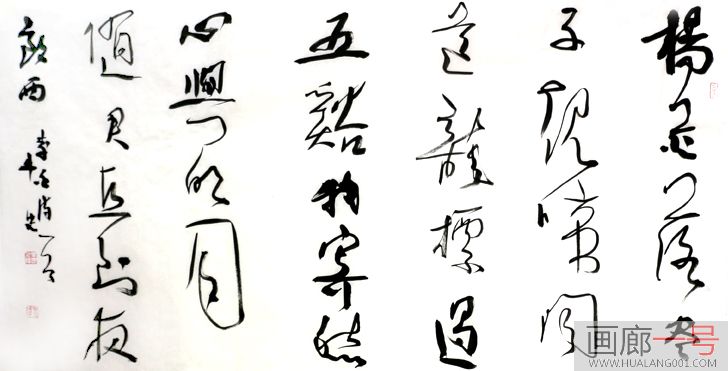 楊花落盡
子規啼聞
道龍標過
五谿我寄愁
心與明月
隨君直到夜
郎西 李白诗一首
画廊一号
WWW.HUALANG001.COM